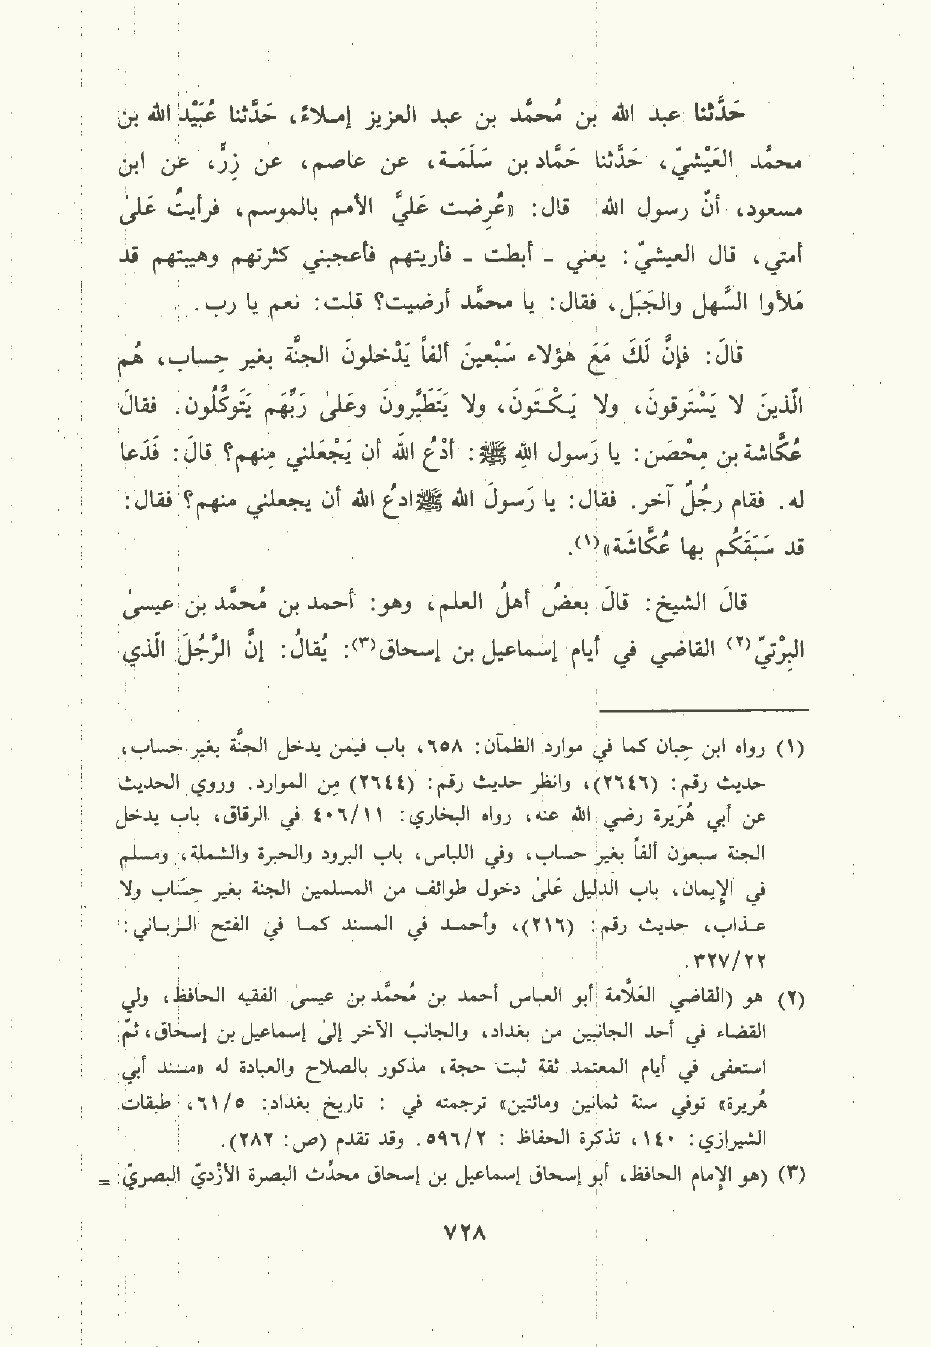 حَدَّثنا عبد الله بن مُحمَّد بن عبد العزيز إمـلاءً، حَدَّثنا عُبَيْد الله بن
محمَّد العَيْشيّ، حَدَّثنا حمَّاد بن سَلَمَـة، عن عاصم، عن زِرّ، عن ابن
مسعود، أنّ رسول الله قال: «عُرِضت عليَّ الأمم بالموسم، فرأيتُ علىٰ
أمتي، قال العيشيّ: يعني ـ أبطت ـ فأريتهم فأعجبني كثرتهم وهيبتهم قد
مَلأوا السَّهل والجَبَل، فقال: يا محمَّد أرضيت؟ قلت: نعم يا رب.
قالَ: فإنَّ لَكَ مَعَ هؤلاء سَبْعينَ ألفاً يَدْخلونَ الجنَّة بغير حِساب، هُم
الَّذينَ لا يَسْتَرقونَ، ولا يَـكْـتَـوونَ، ولا يَتَطَيَّرونَ وعَلىٰ رَبِّهَم يَتَوكَّلُونَ. فقالَ
عُكَّاشة بن مِحْصَن: يا رَسول اللهِ ﷺ: أدْعُ الله أن يَجْعَلني مِنهم؟ قالَ: فَدَعا
له. فقام رجُلٌ آخر. فقال: يا رَسولَ الله ﷺ ادعُ الله أن يجعلني منهم؟ فقال:
قد سَبَقَكُم بها عُكَّاشَة»(١).
قالَ الشيخ: قالَ بعضُ أهلُ العلم، وهو: أحمد بن مُحمَّد بن عيسىٰ
البِرْتيّ(٢) القاضي في أيام إسماعيل بن إسحاق(٣): يُقالُ: إنَّ الرَّجُلَ الَّذي
(١) رواه ابن حِبان كما في موارد الظمآن: ٦٥٨، باب فيمن يدخل الجنَّة بغير حساب،
حديث رقم: (٢٦٤٦)، وانظر حديث رقم: (٢٦٤٤) مِن الموارد. وروي الحديث
عن أبي هُرَيرة رضي الله عنه، رواه البخاري: ٤٠٦/١١ في الرقاق، باب يدخل
الجنة سبعون ألفاً بغير حساب، وفي اللباس، باب البرود والحبرة والشملة، ومسلم
في الإيمان، باب الدليل علىٰ دخول طوائف من المسلمين الجنة بغير حِسَاب ولا
عـذاب، حديث رقم: (٢١٦)، وأحمـد في المسند كمـا في الفتح الـربـاني:
٣٢٧/٢٢.
(٢) هو (القاضي العَلاَّمة أبو العباس أحمد بن مُحمَّد بن عيسىٰ الفقيه الحافظ، ولي
القضاء في أحد الجانبين من بغداد، والجانب الآخر إلىٰ إسماعيل بن إسحاق، ثمّ
استعفى في أيام المعتمد ثقة ثبت حجة، مذكور بالصلاح والعبادة له «مسند أبي
هُريرة» توفي سنة ثمانين ومائتين» ترجمته في : تاريخ بغداد: ٦١/٥، طبقات
الشيرازي: ١٤٠، تذكرة الحفاظ : ٥٩٦/٢. وقد تقدم (ص: ٢٨٢).
(٣) (هو الإمام الحافظ، أبو إسحاق إسماعيل بن إسحاق محدِّث البصرة الأزْديّ البصريّ: =
٧٢٨